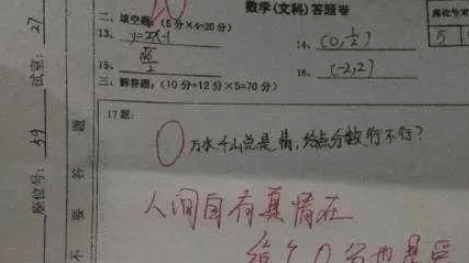 数学(文科)答题卷
座位号末
二、填空题:(5分×4=20分)
13、y=2x-1
14、(0,1/2)
5
15、√6/2
16、(-2,2)
三、解答题:(10分+12分×5=70分)
17题:
万水千山总是情,给点分数行不行?
人间自有真情在
给个0分也是
座位号: 59
试室: 27
不要答题